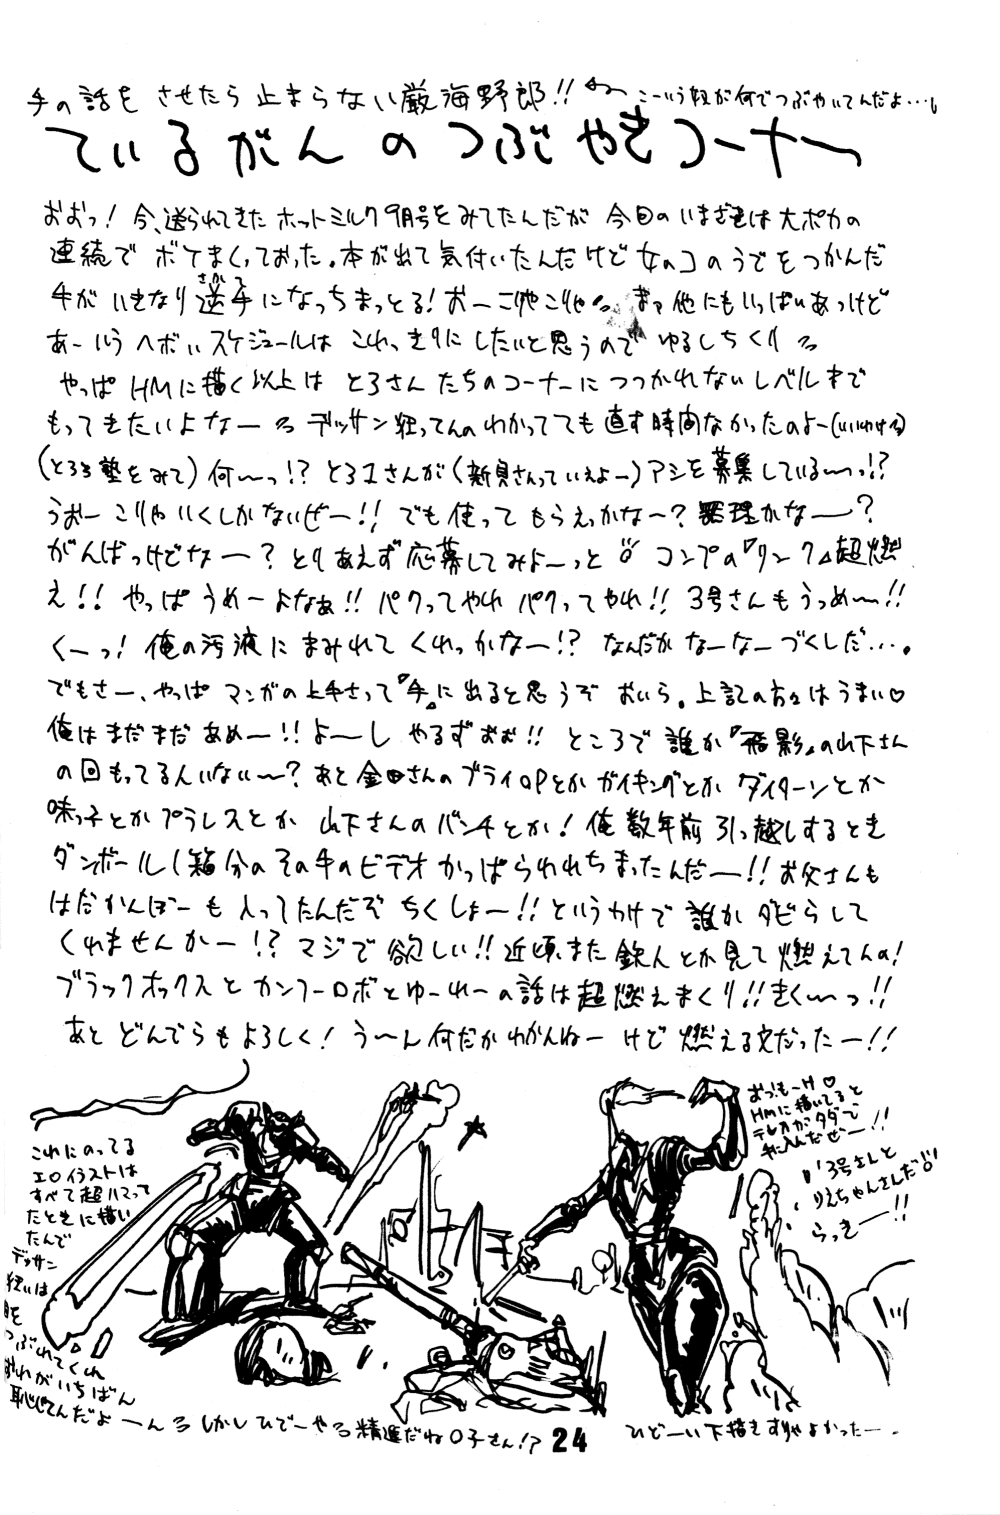 手の話をさせたら止まらない厳海野郎!! こーいう奴が何でつぶやいてんだよ…。
ているがんのつぶやきコーナー
おおっ!今、送られてきたホットミルク9月号をみてたんだが今回のいまぎは大ポカの
連続でボケまくっておった。本が出て気付いたんだけど女のコのうでをつかんだ
手がいきなり逆手になっちまっとる!おーこりゃこりゃ まァ他にもいっぱいあっけど
さかて
あーいうヘボいスケジュールはこれっきりにしたいと思うのでゆるしちくり
やっぱHMに描く以上はとろさんたちのコーナーにつつかれないレベルまで
もってきたいよなー デッサン狂ってんのわかってても直す時間なかったのよー(いいわけ)
(とろろ塾をみて)何〜っ!?とろ1さんが(新貝さんっていえよー)アシを募集している〜っ!?
うおーこりゃいくしかないぜー!!でも使ってもらえっかな〜?無理かなー?
がんばっけどなー?とりあえず応募してみよーっと コンプの『リンク』超燃
え!!やっぱうめーよなぁ!!パクってやれパクってやれ!!3号さんもうっめ〜!!
くーっ!俺の汚液にまみれてくれっかなー!?なんだかなーなーづくしだ…。
でもさー、やっぱマンガの上手さって『手』に出ると思うぞおいら。上記の方々はうまい♡
俺はまだまだあめー!!よーしやるずおぉ!!ところで誰か『飛影』の山下さん
の回もってる人いない〜?あと金田さんのブライOPとかガイキングとかダイターンとか
味っ子とかプラレスとか山下さんのバンチとか!俺数年前引っ越しするとき
ダンボール1箱分のその手のビデオかっぱらわれちまったんだー!!お父さんも
はだかんぼーも入ってたんだぞちくしょー!!というわけで誰かダビらして
くれませんかー!?マジで欲しい!!近頃また鉄人とか見て燃えてんの!
ブラックオックスとカンフーロボとゆーれーの話は超燃えまくり!!きく〜っ!!
あとどんでらもよろしく!う〜ん何だかわかんねーけど燃える文だったー!!
これにのってる
エロイラストは
すべて超ハマって
たときに描い
たんで
デッサン
狂いは
目を
つぶれてくれ
おれがいちばん
恥じてんだよーん しかしひでーや 精進だねO子さん!?
24
おっ!もーH♡
HMに描いてると
テレカがタダで
手に入んだぜー!!
3号さんと
りえちゃんさんだ
らっきー!!
ひどーい下描きすりゃよかったー.